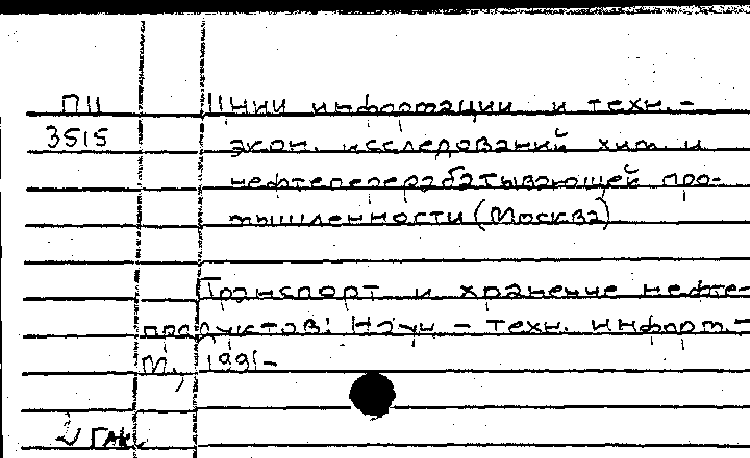 ПЦ ЦНИИ информации и техн.-
3515 экон. исследований хим. и
нефтеперерабатывающей про-
мышленности (Москва)
Транспорт и хранение нефте-
продуктов: Науч.-техн. информ.-
М., 1991-